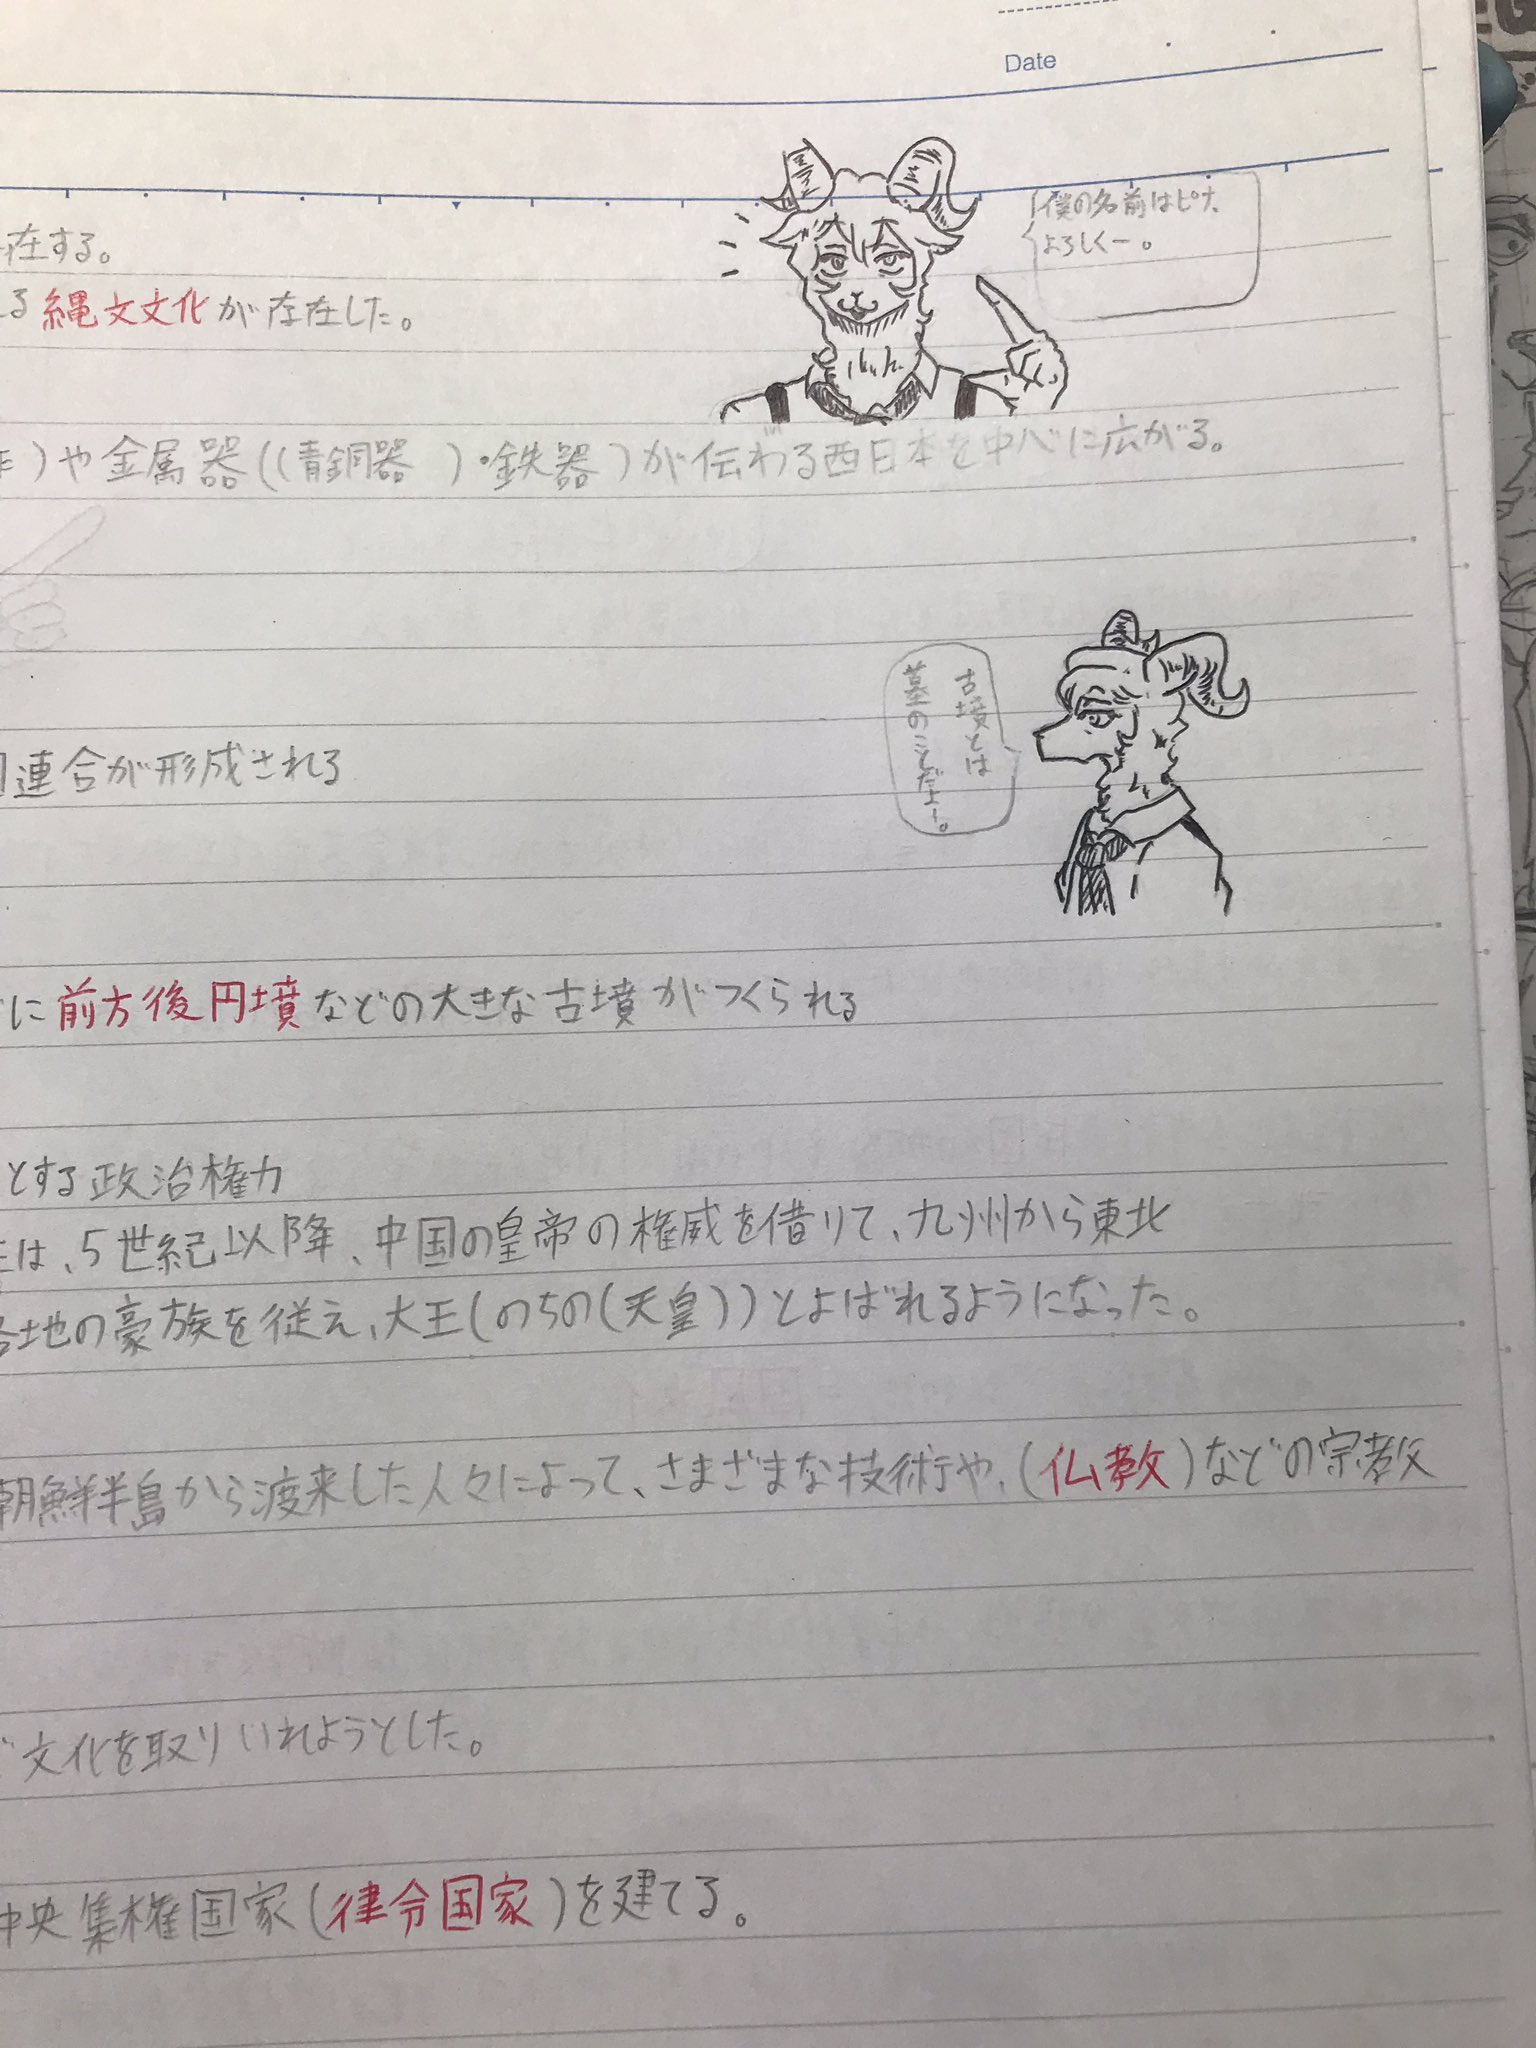 Date
僕の名前はピナ、
よろしくー。
在する。
る縄文文化が存在した。
)や金属器((青銅器 )・鉄器 )が伝わる西日本を中心に広がる。
古墳とは
墓のことだよー。
連合が形成される
に前方後円墳などの大きな古墳がつくられる
とする政治権力
は、5世紀以降、中国の皇帝の権威を借りて、九州から東北
各地の豪族を従え、大王(のちの(天皇))とよばれるようになった。
朝鮮半島から渡来した人々によって、さまざまな技術や、(仏教)などの宗教
文化を取りいれようとした。
中央集権国家(律令国家 )を建てる。